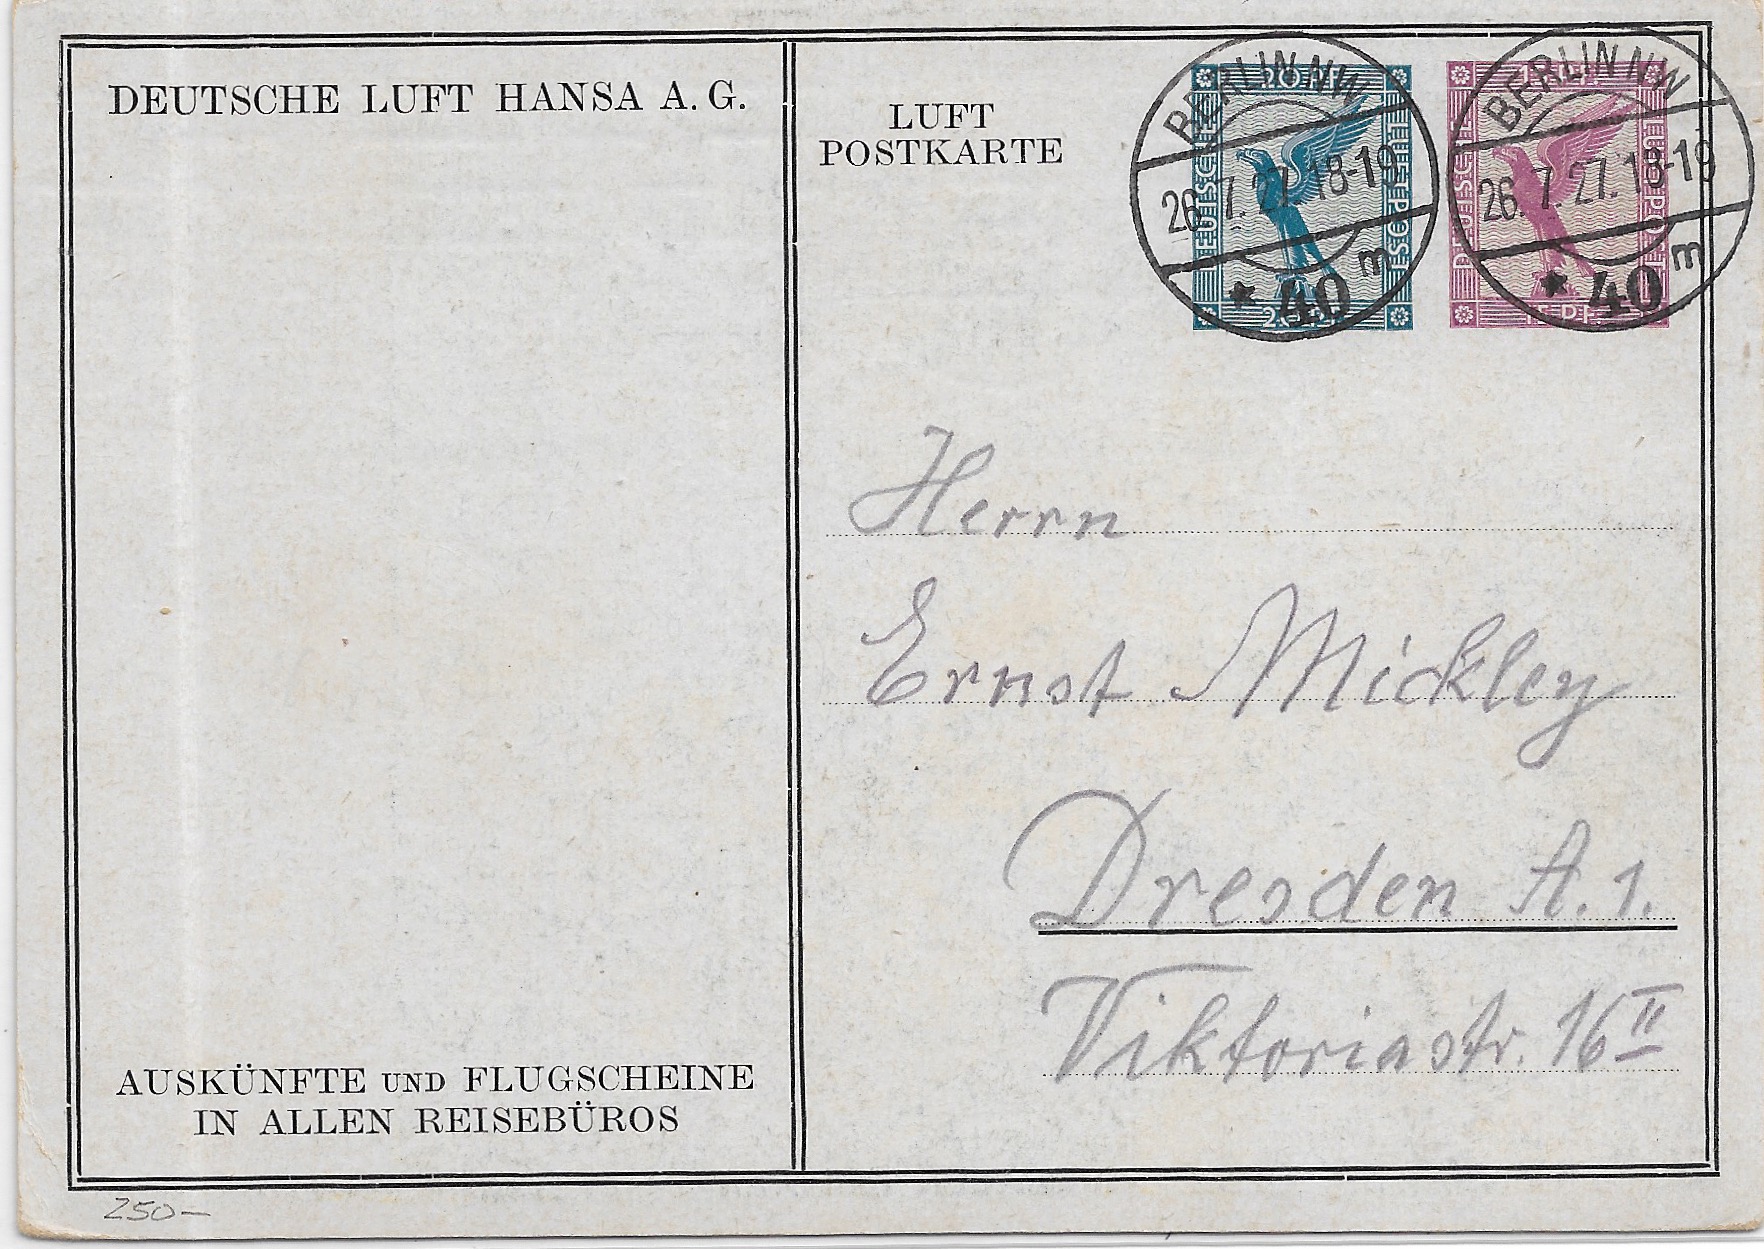 DEUTSCHE LUFT HANSA A.G.
LUFT
POSTKARTE
BERLIN NW
26.7.27.18-19
* 40 m
DEUTSCHE LUFTPOST
20 Pf
BERLIN NW
26.7.27.18-19
* 40 m
DEUTSCHE LUFTPOST
15 PF.
Herrn
Ernst Mickley
Dresden A. 1.
Viktoriastr. 16 II
AUSKÜNFTE UND FLUGSCHEINE
IN ALLEN REISEBÜROS
250—